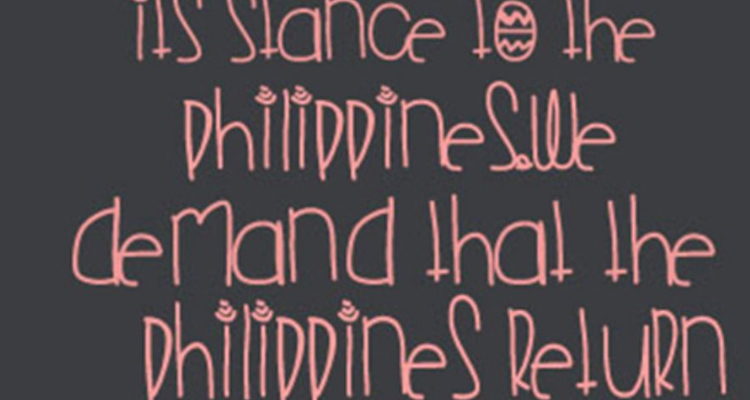 its stance to the
philippines.We
demand that the
philippines Return